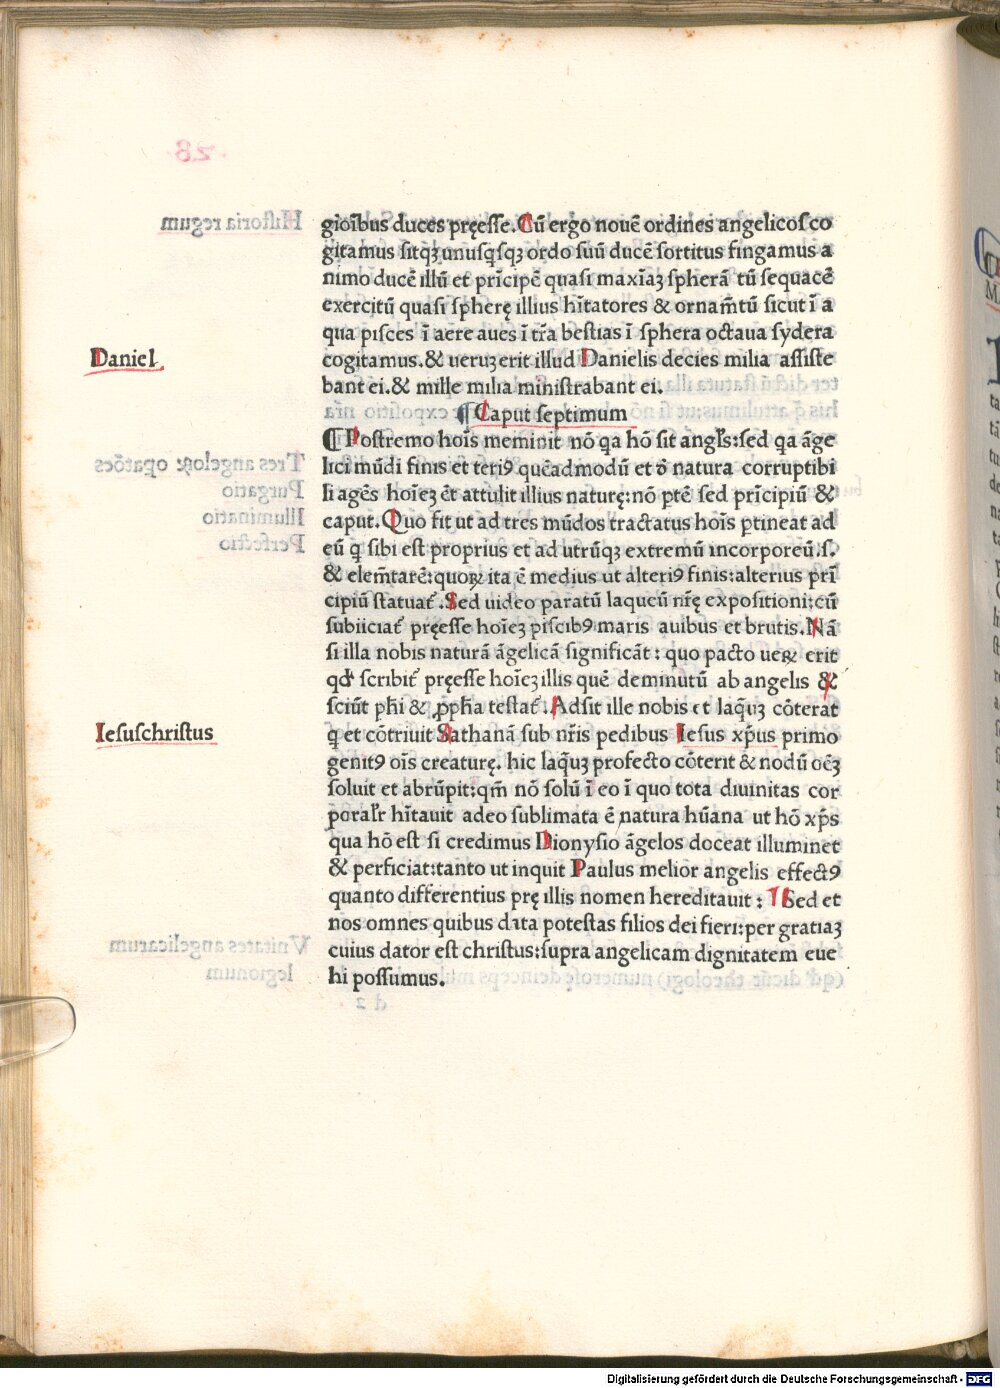 gioībus duces pręeſſe. Cū ergo nouē ordines angelicoſ co
gitamus ſitqꝫ unuſqſqꝫ ordo ſuū ducē ſortitus fingamus a
nimo ducē illū et prīcipē quaſi maxīaꝫ ſpherā tū ſequacē
exercitū quaſi ſpherę illius hītatores & ornam̄tū ſicut ī a
qua piſces ī aere aues ī tr̄a beſtias ī ſphera octaua ſydera
cogitamus. & ueruꝫ erit illud Danielis decies milia aſſiſte
bant ei. & mille milia miniſtrabant ei.
Daniel
¶ Caput ſeptimum
¶ Poſtremo hoīs meminit nō qa hō ſit angl's: ſed qa āge
lici mūdi finis et teriꝰ quēadmodū et ō natura corruptibi
li agēs hoīeꝫ ēt attulit illius naturę: nō ptē ſed prīcipiū &
caput. Quo fit ut ad tres mūdos tractatus hoīs ꝑtineat ad
eū q ſibi eſt proprius et ad utrūqꝫ extremū incorporeū .ſ.
& elem̄tarē: quoꝝ ita ē medius ut alteriꝰ finis: alterius prī
cipiū ſtatuat̄. Sed uideo paratū laqueū nr̄ę expoſitioni: cū
ſubiiciat̄ pręeſſe hoīeꝫ piſcibꝰ maris auibus et brutis. Nā
ſi illa nobis naturā āgelicā ſignificāt: quo pacto ueꝝ erit
qd' ſcribit̄ pręeſſe hoīeꝫ illis quē deminutū ab angelis &
ſciūt ph̄i & ꝓph̄a teſtat̄. Adſit ille nobis et laqꝫ cōterat
q et cōtriuit Sathanā ſub nr̄is pedibus Ieſus xp̄us primo
genitꝰ oīs creaturę. hic laqꝫ profecto cōterit & nodū oēꝫ
ſoluit et abrūpit: qm̄ nō ſolū ī eo ī quo tota diuinitas cor
ꝑoral'r hītauit adeo ſublimata ē natura hūana ut hō xp̄s
qua hō eſt ſi credimus Dionyſio āgelos doceat illuminet
& perficiat: tanto ut inquit Paulus melior angelis effectꝰ
quanto differentius prę illis nomen hereditauit: ¶ Sed et
nos omnes quibus data poteſtas filios dei fieri: per gratiaꝫ
cuius dator eſt chriſtus: ſupra angelicam dignitatem eue
hi poſſumus.
Ieſuſchriſtus
Digitalisierung gefördert durch die Deutsche Forschungsgemeinschaft - DFG